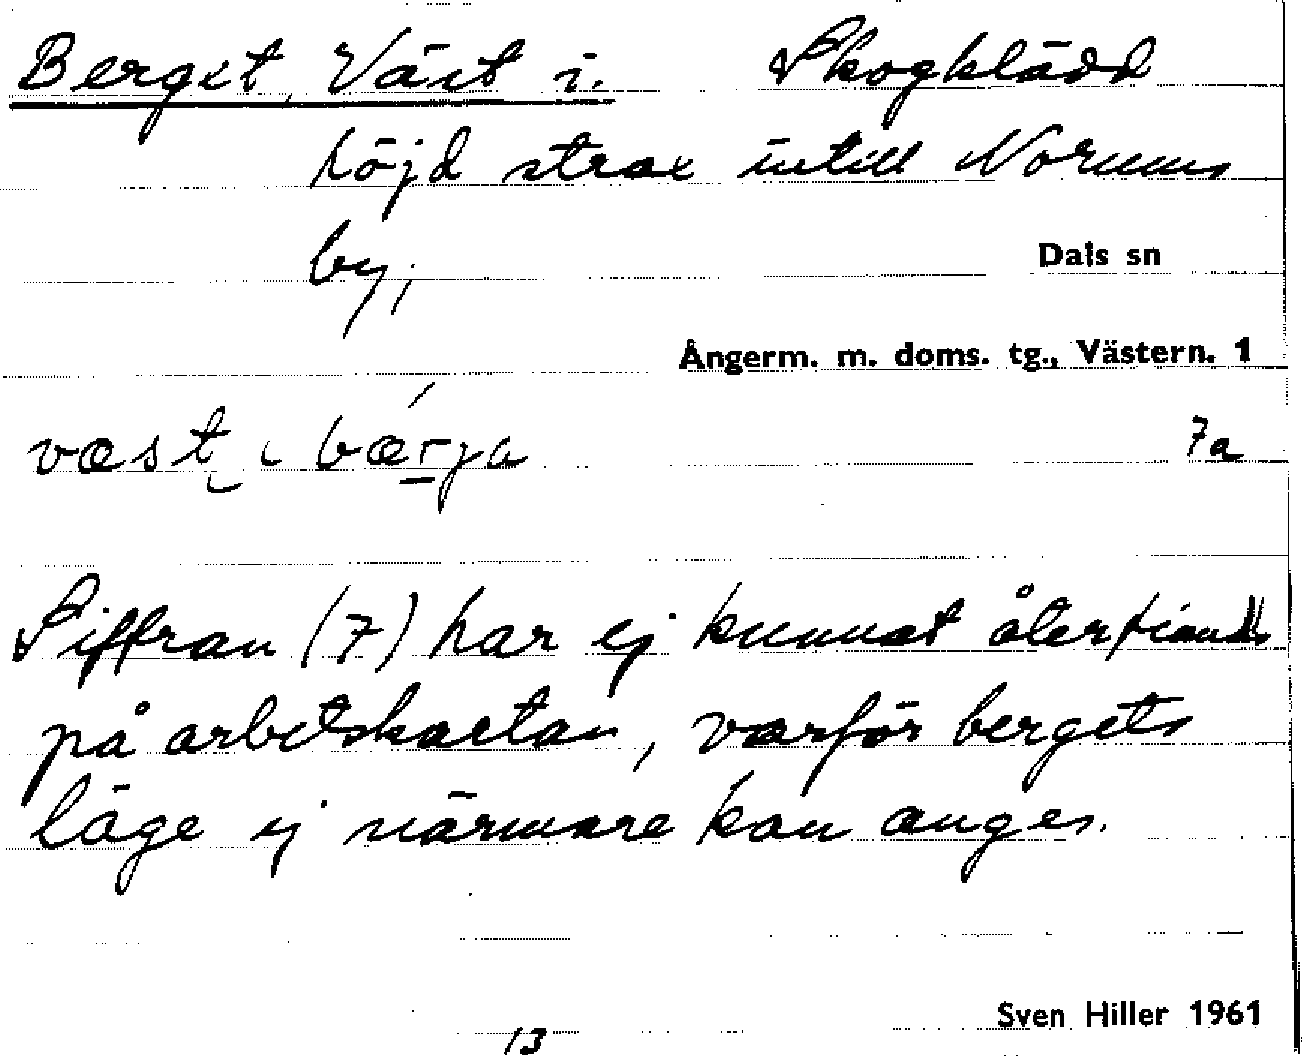 Berget, Väst i. Skogklädd
höjd strax intill Norums
by;
Dals sn
Ångerm. m. doms. tg., Västern. 1
væst ɩ bǽrja 7a
Siffran (7) har ej kunnat återfinnas
på arbetskartan, varför bergets
läge ej närmare kan anges.
Sven Hiller 1961
13